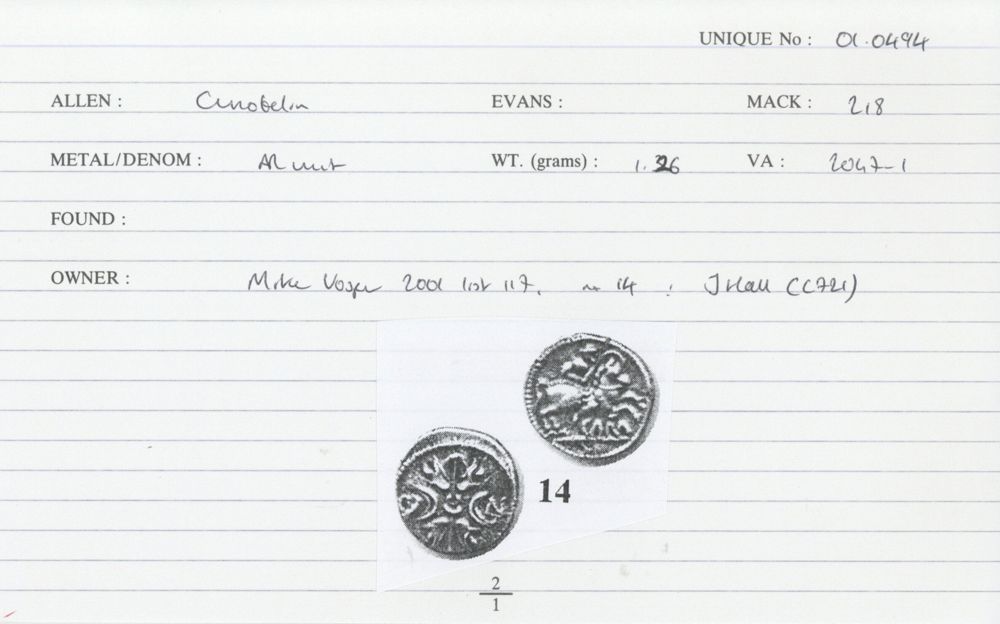 UNIQUE No : 01.0494
ALLEN : Cunobelin EVANS : MACK : 218
METAL/DENOM : AR unit WT. (grams) : 1.26 VA : 2047-1
FOUND :
OWNER : Mike Vosper 2001 list 117, no 14 ; (CC721)
14
2
1